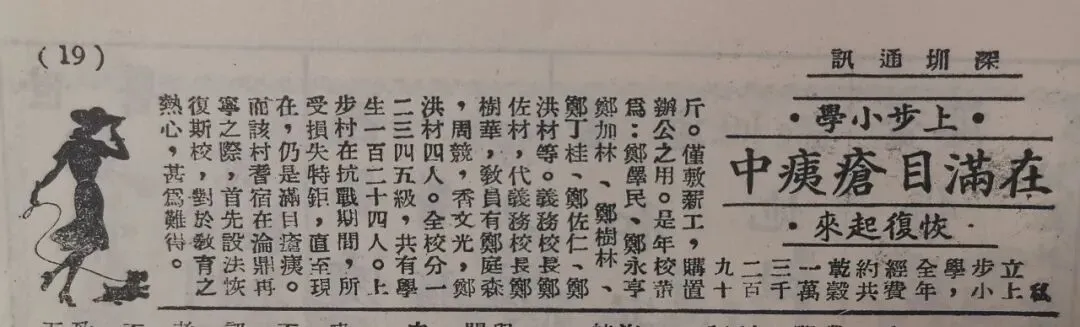 (19)
深圳通訊
·上步小學·
在滿目瘡痍中
·恢復起來·
私
立上
步小
學，
全年
經費
約共
乾穀
一萬
三千
二百
九十
斤。僅敷薪工，購置
辦公之用。是年校董
為：鄭學民、鄭永亨
鄭加林、鄭樹林、
鄭丁桂、鄭佐仁、鄭
洪材等。義務校長鄭
佐材，代義務校長鄭
樹華，教員有鄭庭森
，周競，香文光，鄭
洪材四人。全校分一
二三四五級，共有學
生一百二十四人。上
步村在抗戰期間，所
受損失特鉅，直至現
在，仍是滿目瘡痍。
而該村耆宿在淪鼎再
寧之際，首先設法恢
復斯校，對於教育之
熱心，甚爲難得。